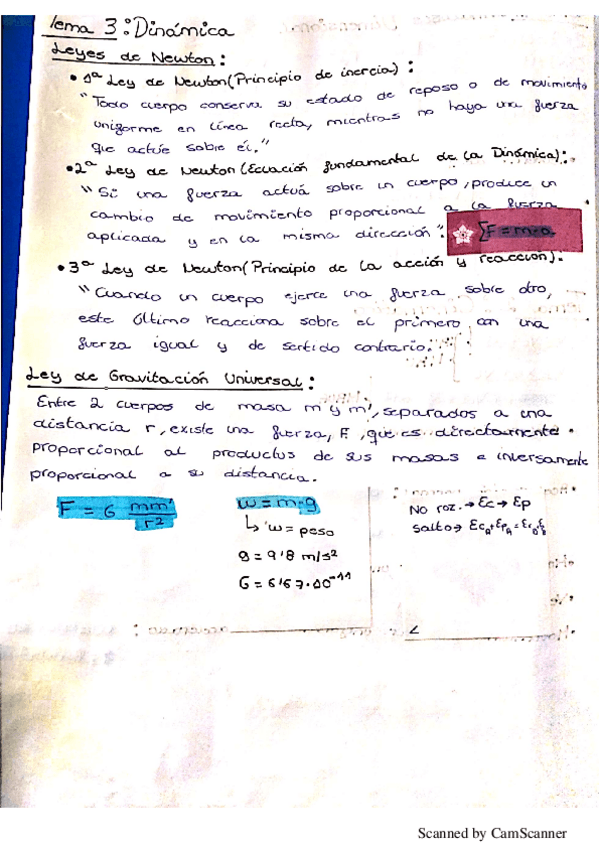 Tema 3: Dinámica
Leyes de Newton:
• 1ª Ley de Newton (Principio de inercia):
"Todo cuerpo conserva su estado de reposo o de movimiento
uniforme en línea recta, mientras no haya una fuerza
que actúe sobre él."
• 2ª Ley de Newton (Ecuación fundamental de la Dinámica):
"Si una fuerza actúa sobre un cuerpo, produce un
cambio de movimiento proporcional a la fuerza
aplicada y en la misma dirección". ΣF = m·a
• 3ª Ley de Newton (Principio de la acción y reacción):
"Cuando un cuerpo ejerce una fuerza sobre otro,
este último reacciona sobre el primero con una
fuerza igual y de sentido contrario."
Ley de Gravitación Universal:
Entre 2 cuerpos de masa m y m', separados a una
distancia r, existe una fuerza, F, que es directamente
proporcional al productus de sus masas e inversamente
proporcional a su distancia.
F = G mm'/r²
w = m·g
↳ w = peso
g = 9'8 m/s²
G = 6'67·10⁻¹¹
No roz. → Ec → Ep
Salto →
Scanned by CamScanner